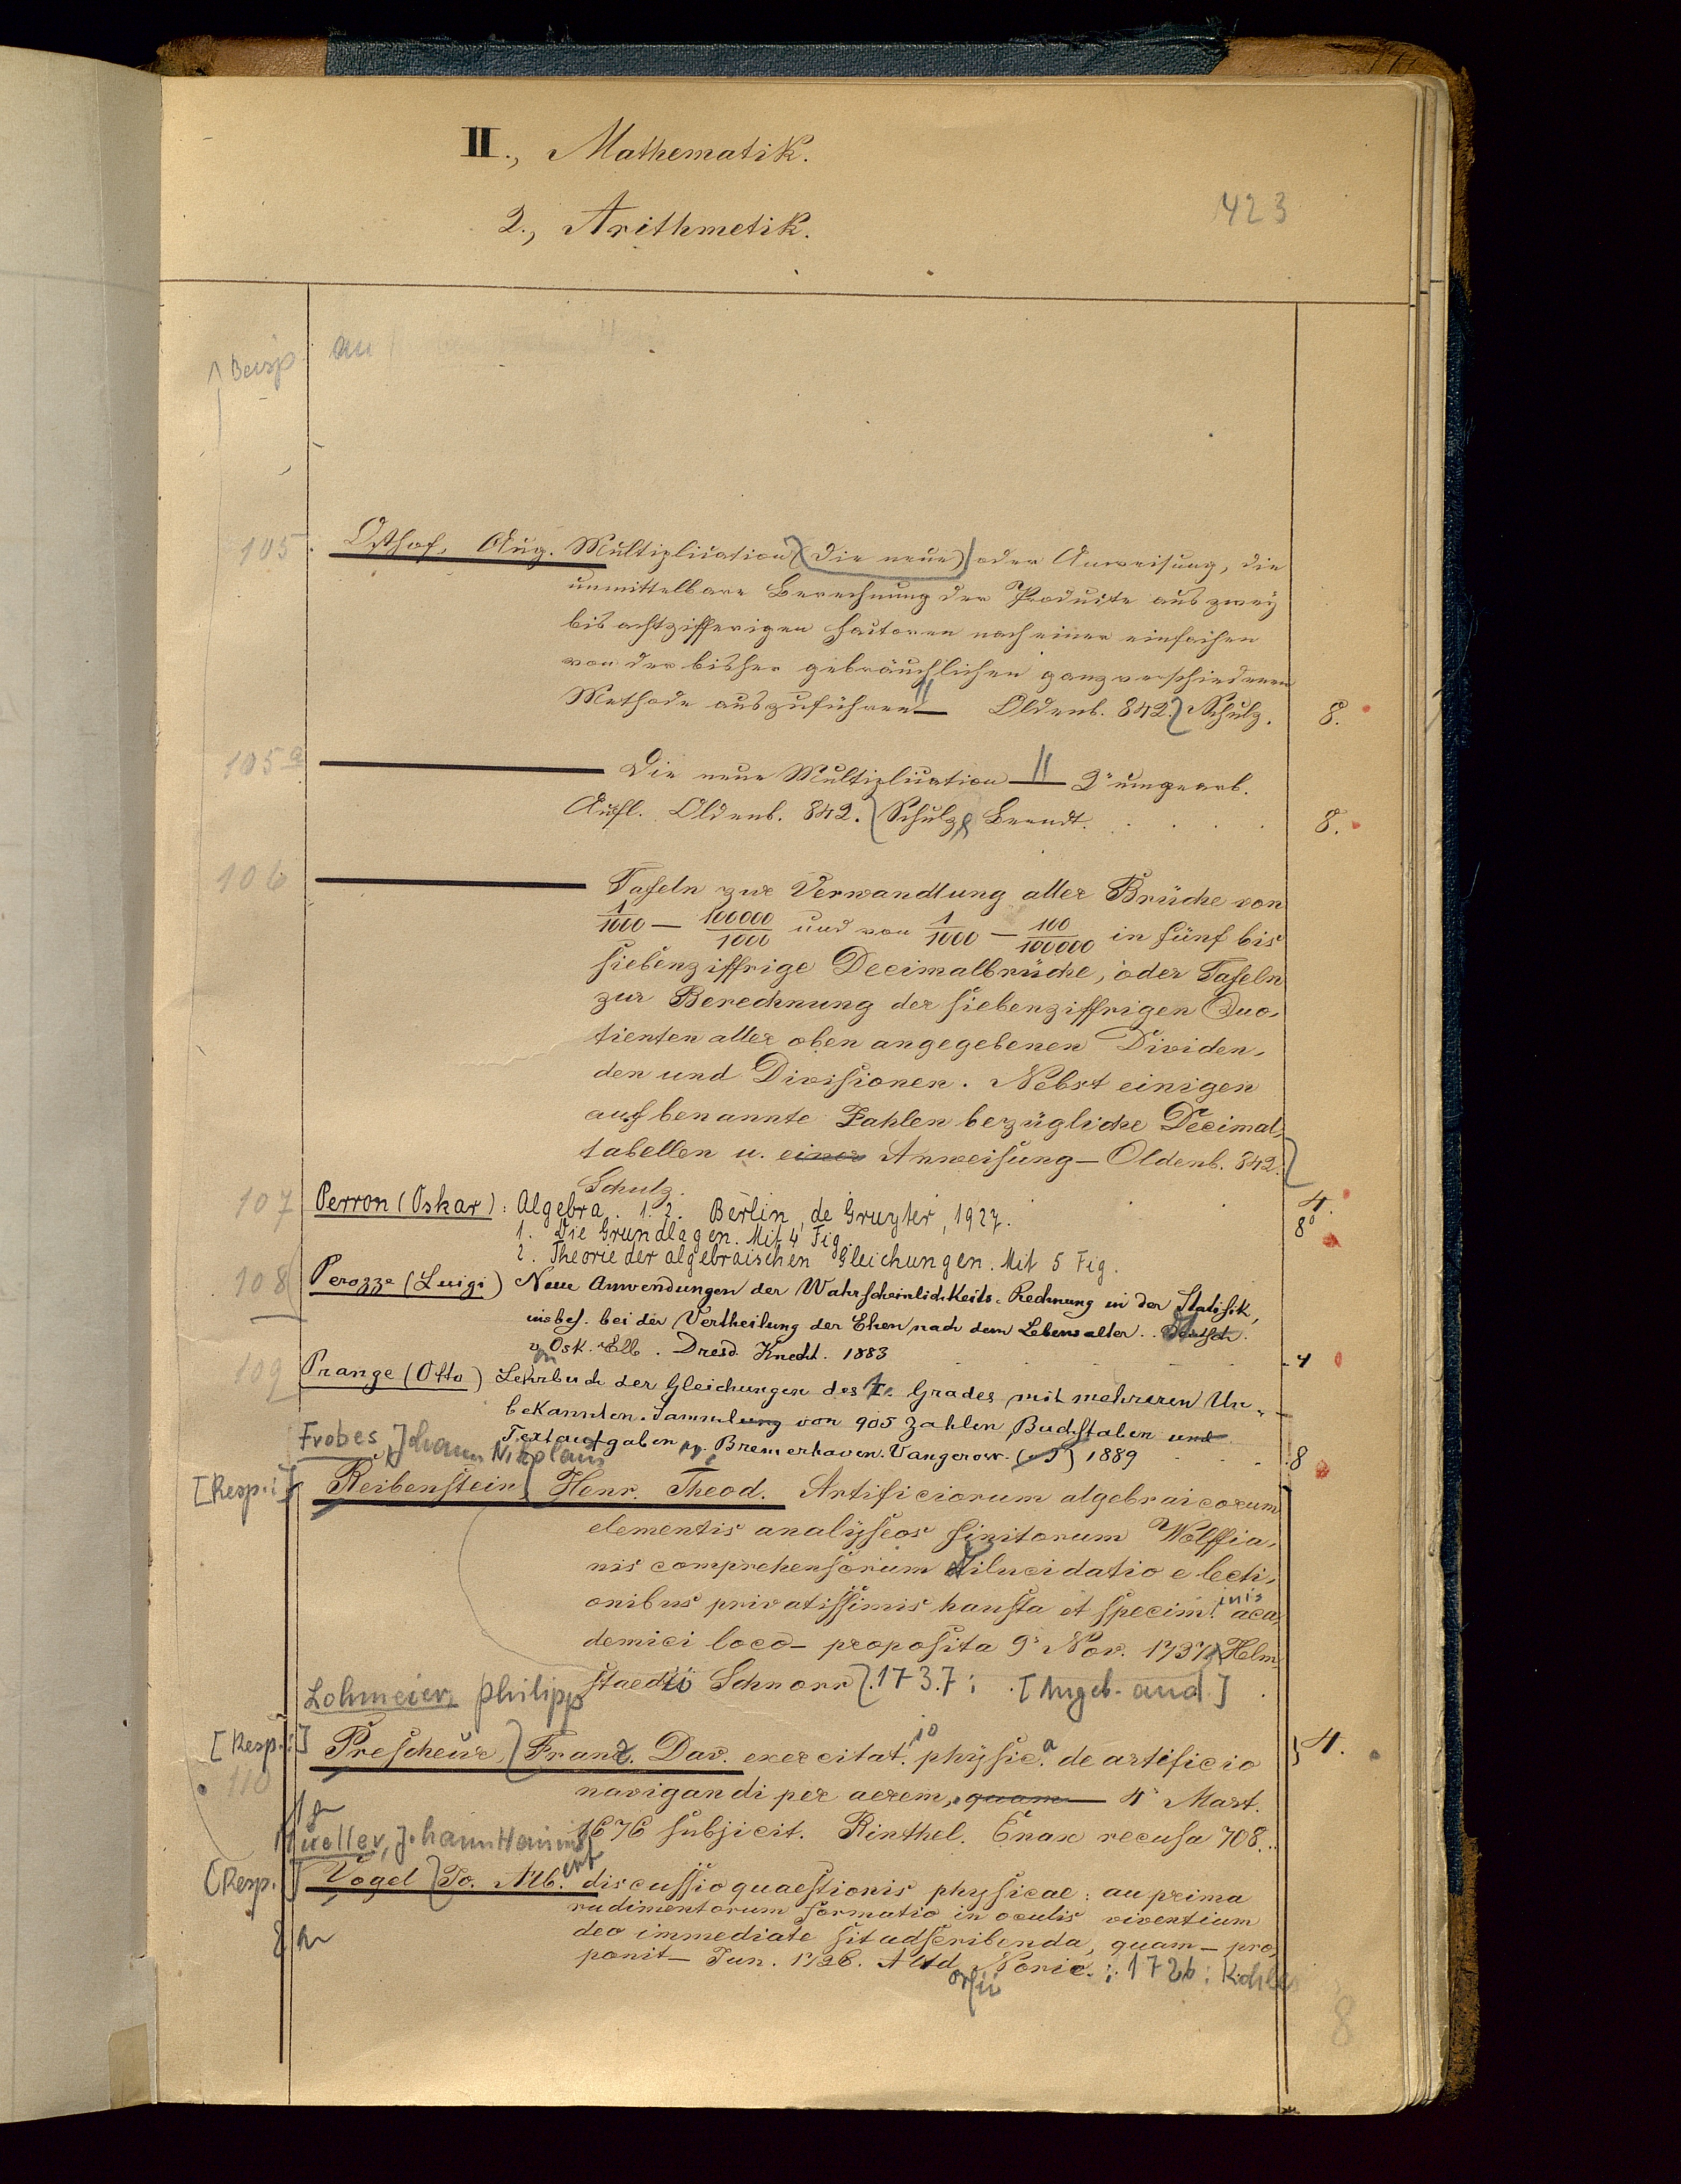 II., Mathematik.
423
2., Arithmetik.
105. Osthof, Aug. Multiplication (die neue) oder Anweisung, die
unmittelbare Berechnung der Producte aus zwey
bis achtzifferigen Factoren nach einer einfachen
von der bisher gebräuchlichen ganz verschiedenen
Methode auszuführen — Oldenb. 842. Schulz. 8.
105a Die neue Multiplication — 2e umgearb.
Aufl. Oldenb. 842. Schulz & Berndt. 8.
106 Tafeln zur Verwandlung aller Brüche von
1/1000 — 100000/1000 und von 1/1000 — 100/100000 in fünf bis
siebenziffrige Decimalbrüche, oder Tafeln
zur Berechnung der siebenziffrigen Quo-
tienten aller oben angegebenen Dividen-
den und Divisionen. Nebst einigen
auf benannte Zahlen bezügliche Decimal-
tabellen u. einer Anweisung — Oldenb. 842.
Schulz. 4.
107 Perron (Oskar): Algebra. 1. 2. Berlin, de Gruyter, 1927. 8°
1. Die Grundlagen. Mit 4 Fig.
2. Theorie der algebraischen Gleichungen. Mit 5 Fig.
108 Perozzo (Luigi) Neue Anwendungen der Wahrscheinlichkeits-Rechnung in der Statistik,
insbes. bei der Vertheilung der Ehen nach dem Lebensalter. Deutsch.
von Osk. Elb. Dresd. Knecht. 1883 4
109 Prange (Otto) Lehrbuch der Gleichungen des 1. Grades mit mehreren Un-
bekannten. Sammlung von 905 Zahlen Buchstaben und
Textaufgaben pp. Bremerhaven. Vangerow. 1889 8
Frobes, Johann Nikolaus
[Resp.:] Reibenstein, Henr. Theod. Artificiorum algebraicorum
elementis analyseos finitorum Wolffia-
nis comprehensorum dilucidatio e lecti-
onibus privatissimis hausta et speciminis aca-
demici loco — proposita 9. Nov. 1737. Helm-
staedii Schnorr. 1737; [Angeb. and.]
Lohmeier, Philipp
[Resp.:] Prescheur, Franz. Dav. exercitatio physica de artificio 4.
110 navigandi per aerem, quam — 4 Mart.
1676 subjicit. Rinthel. Enax recusa 708.
Mueller, Johann Heinrich
[Resp.] Vogel Jo. Alb. discussio quaestionis physicae: an prima
rudimentorum formatio in oculis viventium
deo immediate sit adscribenda, quam — pro-
ponit — Jun. 1726. Altdorfii Noric.; 1726: Kohles
8